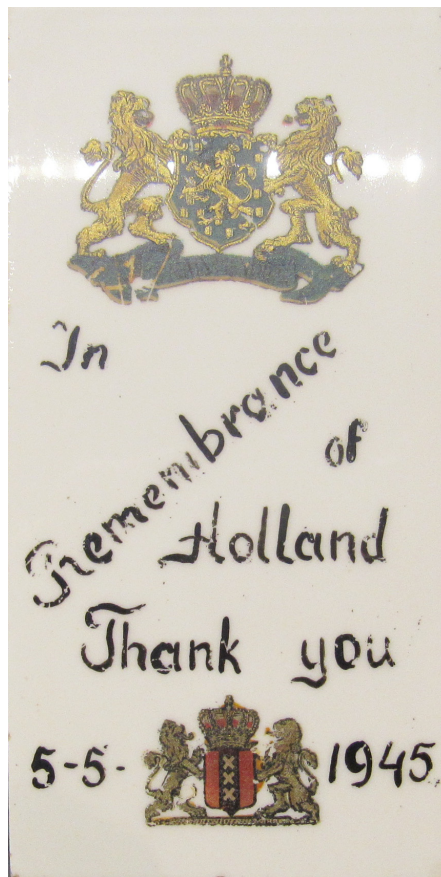 In
Remembrance
of
Holland
Thank you
5-5- 1945